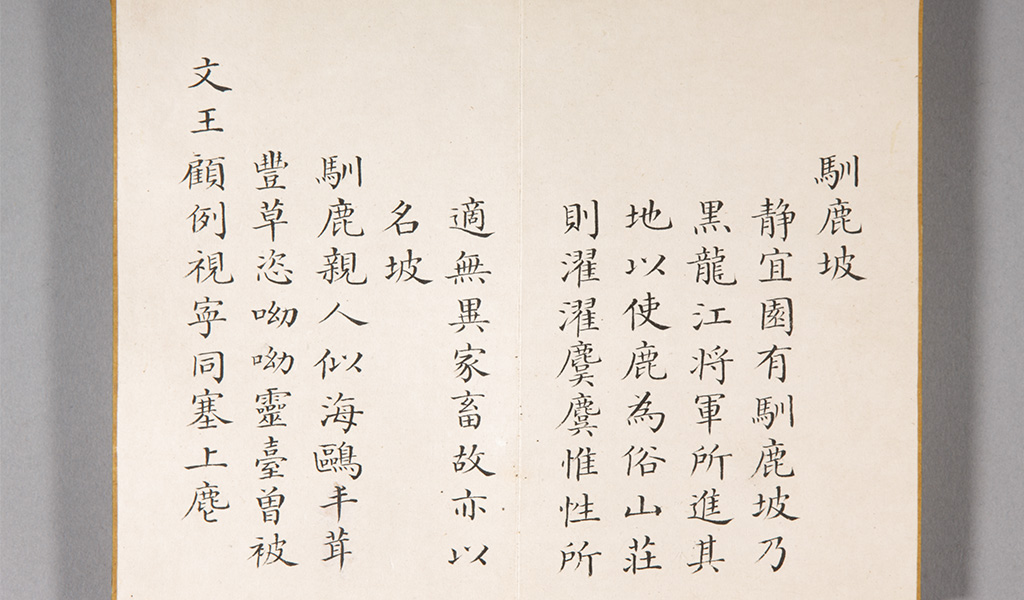 馴鹿坡
静宜園有馴鹿坡乃
黒龍江将軍所進其
地以使鹿為俗山荘
則濯濯麌麌惟性所
適無異家畜故亦以
名坡
馴鹿親人似海鷗丰茸
豐草恣呦呦靈臺曽被
文王顧例視寧同塞上麀